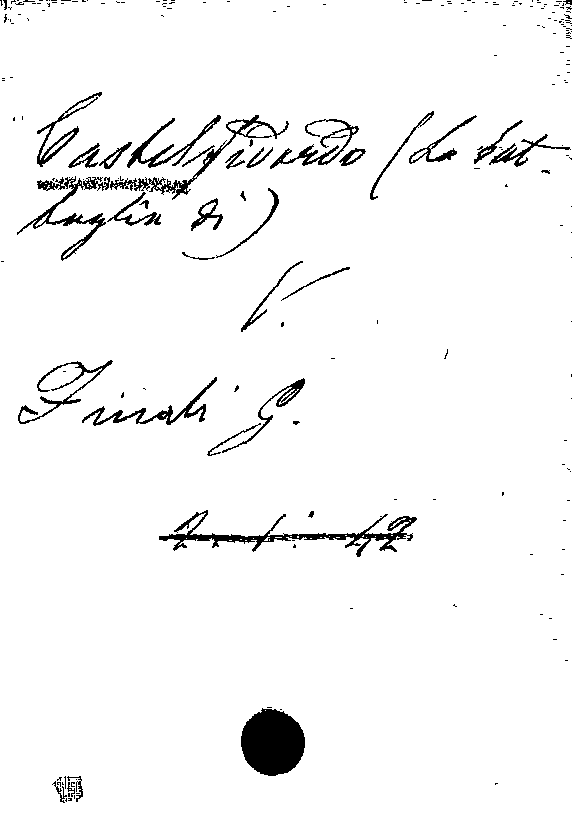 Castelfidardo (La bat-
taglia di)
V.
Finali G.